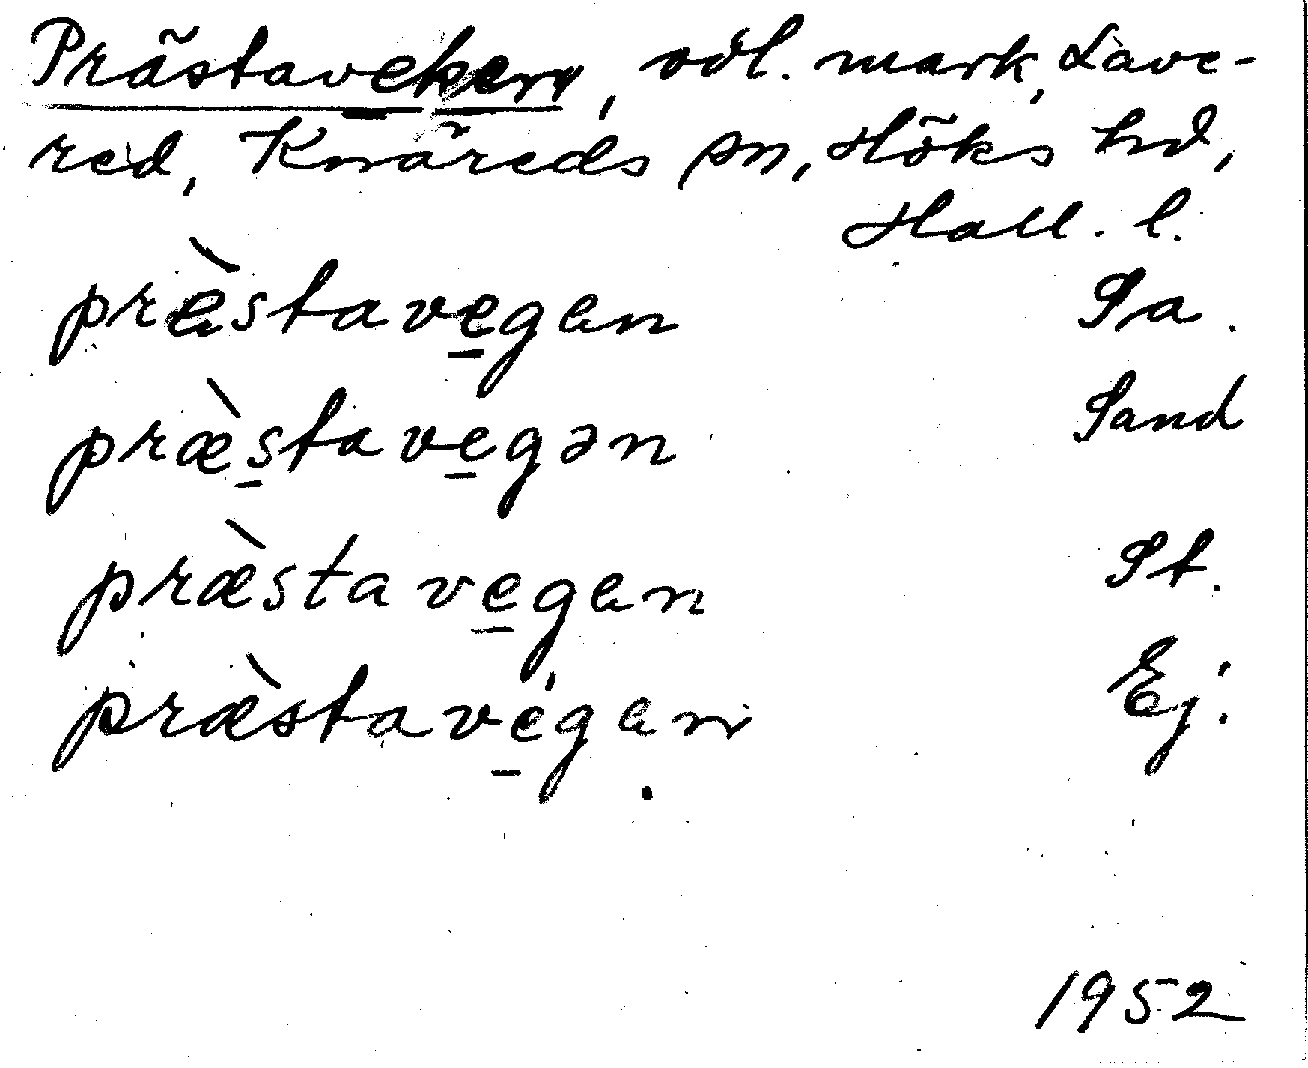 Prästaveken, odl. mark, Lave-
red, Knäreds sn, Höks hd,
Hall. l.
præ̀stavegen Sa.
præ̀stavegən Sand
præ̀stavegen St.
præ̀stavégen Ej.
1952